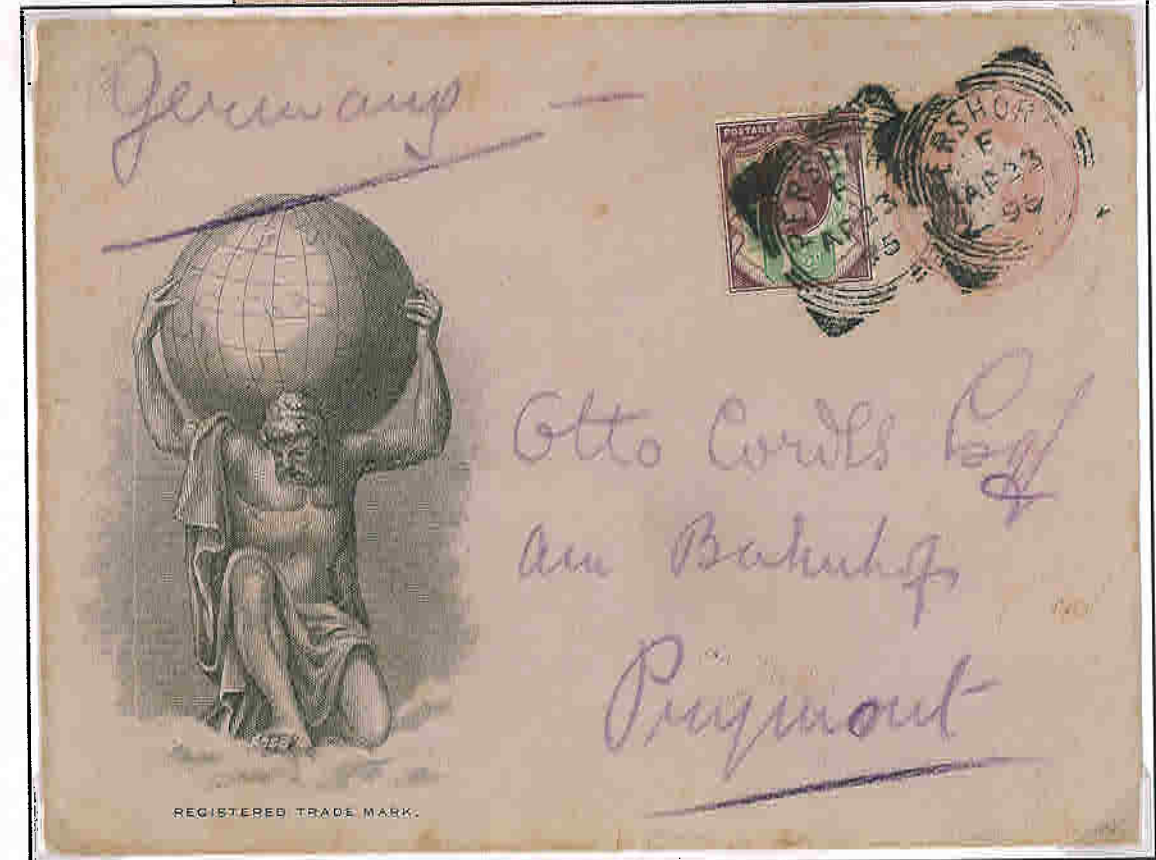 Germany —
POSTAGE
PERSHORE
AP 23
95
PERSHORE
F
AP 23
95
Otto Cordes Esq
am Bahnhof
Pyrmont
REGISTERED TRADE MARK.